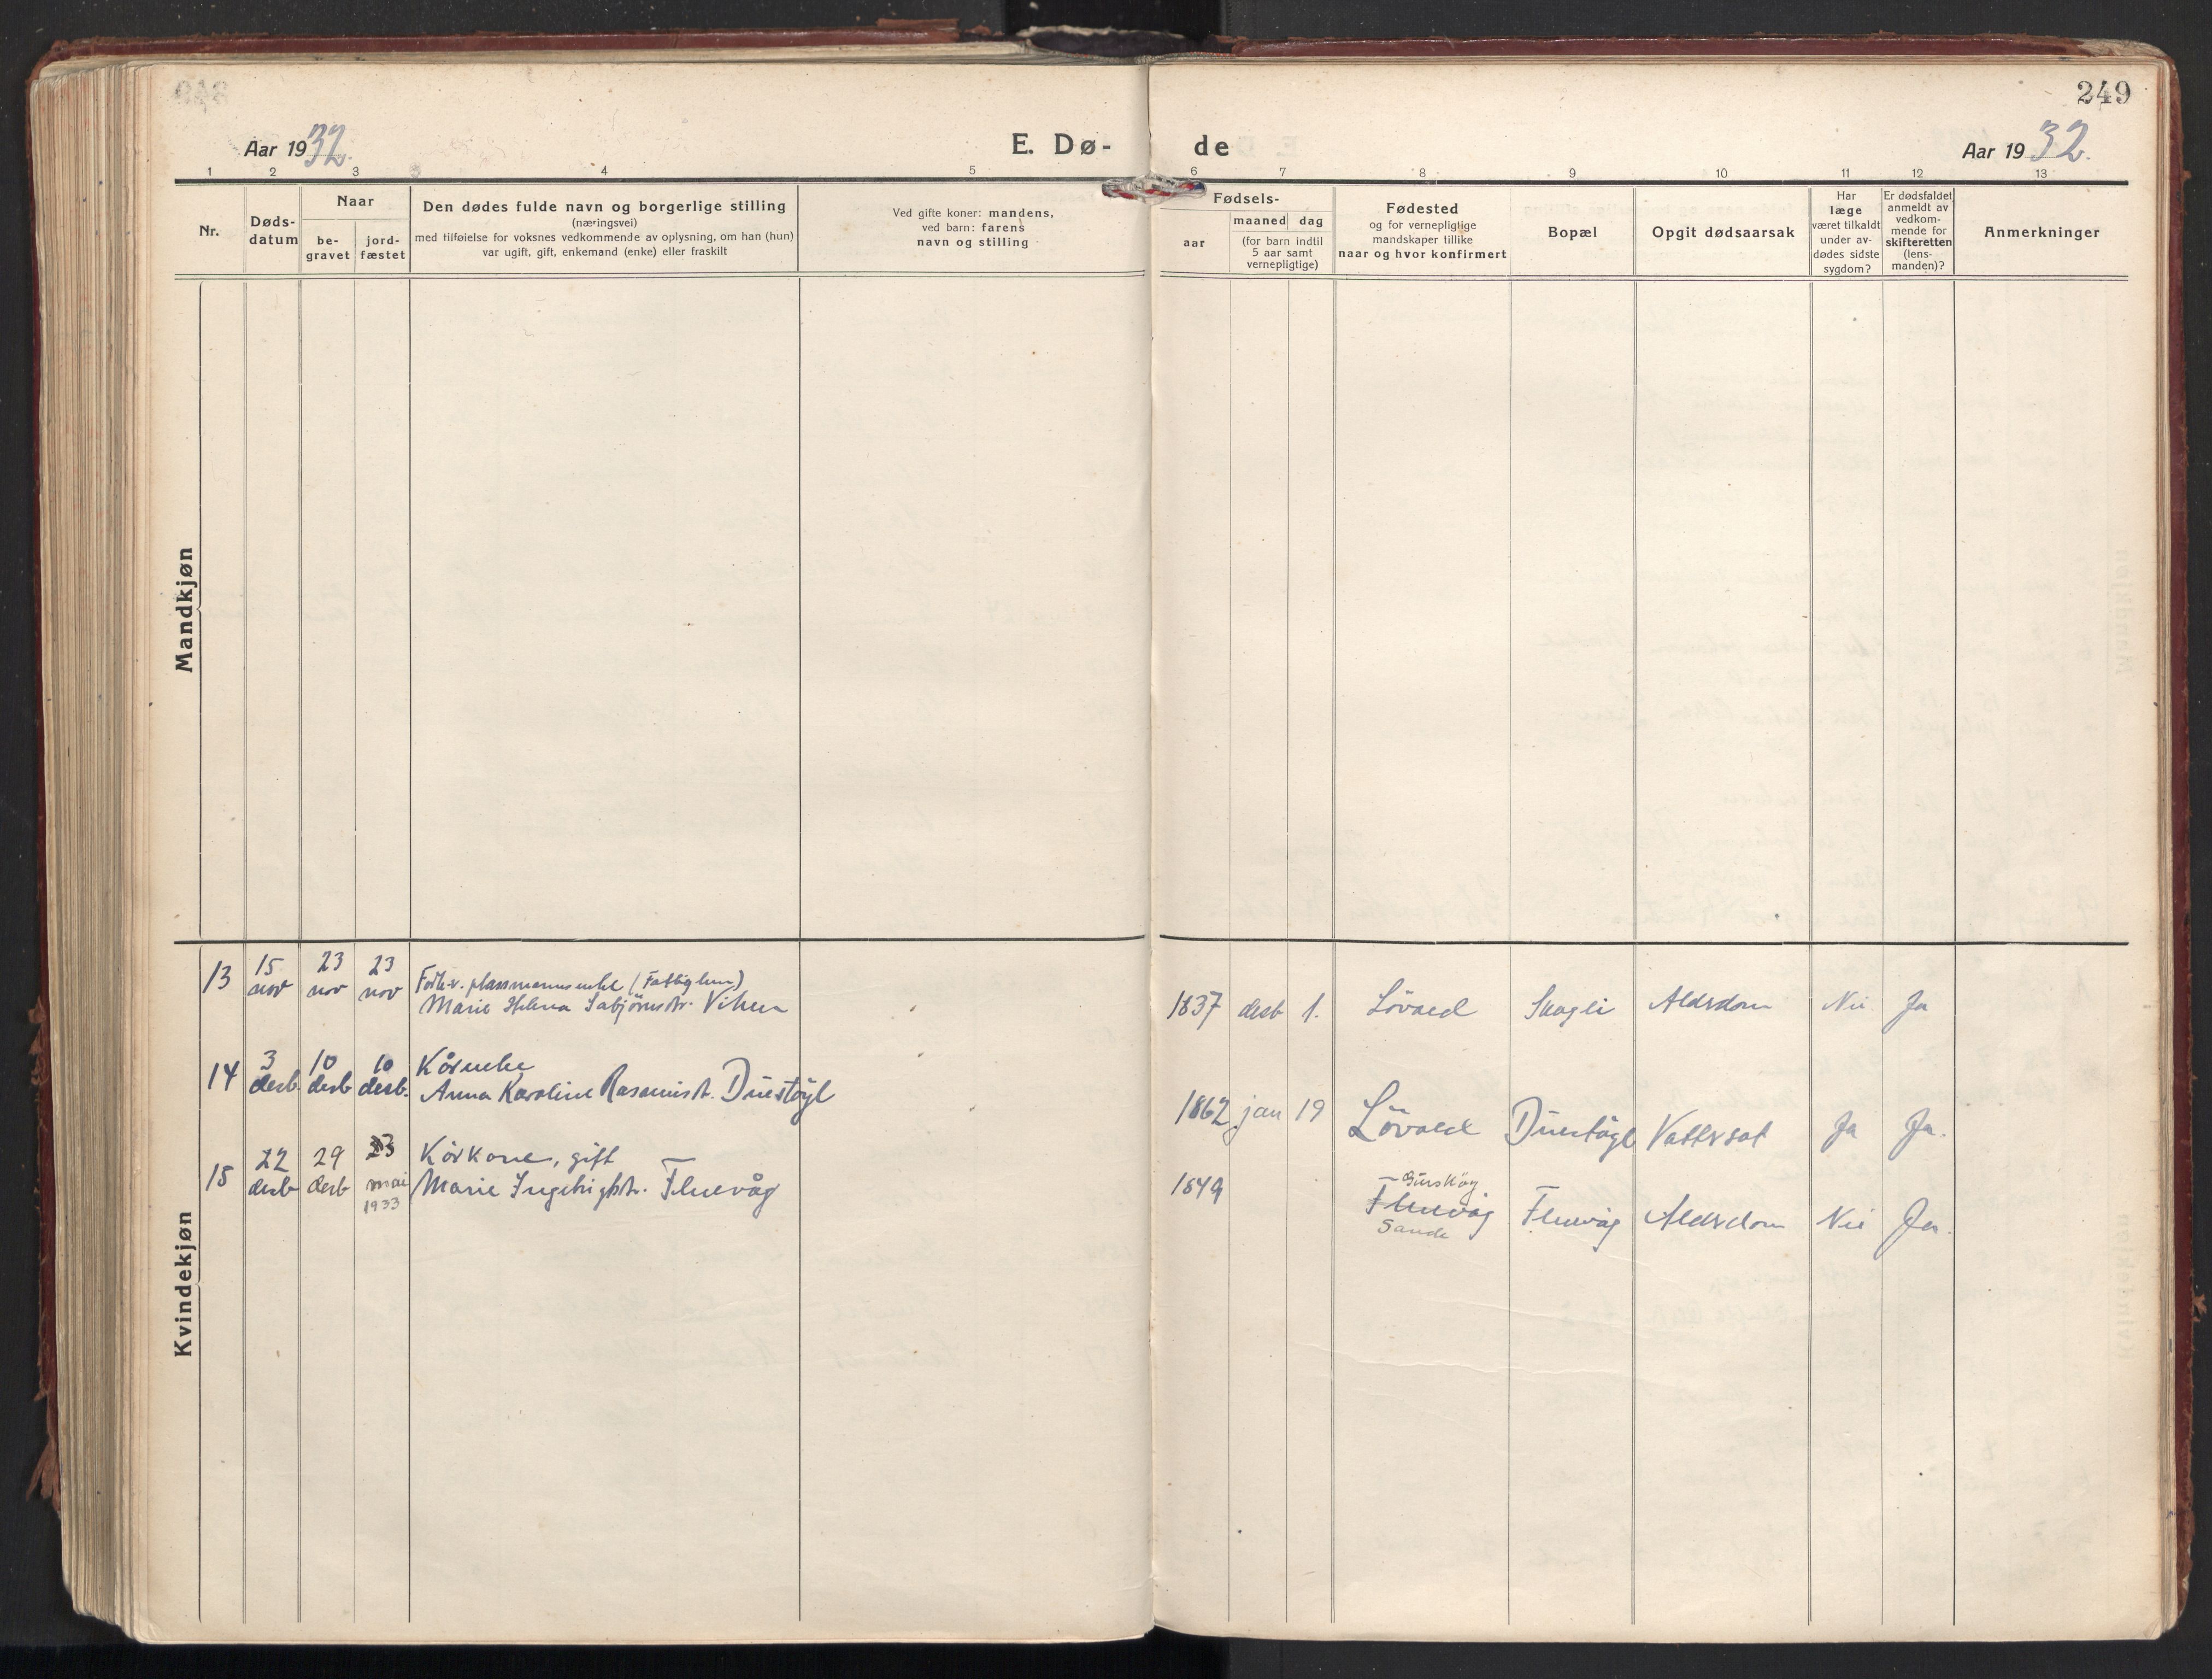 249
Aar 1932.
E. Dø-
de
Aar 1932.
1 2 3 4 5 6 7 8 9 10 11 12 13
Nr.
Døds-
datum
Naar
be-
gravet
jord-
fæstet
Den dødes fulde navn og borgerlige stilling
(næringsvei)
med tilføielse for voksnes vedkommende av oplysning, om han (hun)
var ugift, gift, enkemand (enke) eller fraskilt
Ved gifte koner: mandens,
ved barn: farens
navn og stilling
Fødsels-
aar
maaned dag
(for barn indtil
5 aar samt
vernepligtige)
Fødested
og for vernepligtige
mandskaper tillike
naar og hvor konfirmert
Bopæl
Opgit dødsaarsak
Har
læge
været tilkaldt
under av-
dødes sidste
sygdom?
Er dødsfaldet
anmeldt av
vedkom-
mende for
skifteretten
(lens-
manden)?
Anmerkninger
Mandkjøn
Kvindekjøn
13 15 nov 23 nov 23 nov
plassmannsenke
Marie Helena Vihen
1837 desb 1. Skagli Aldsdom Nei Ja
14 3 desb. 10 desb 10 desb.
Kårenke
Anna Karoline Rasmusdt. Duestøyl
1862 jan 19 Duestøyl Ja Ja.
15 22 desb 29 desb 23 mai 1933
Kårkone, gift
Marie Ingebrigtdt. Fluevåg
1849 Gurskøy
Fluevåg
Sande
Fluevåg Aldsdom Nei Ja.